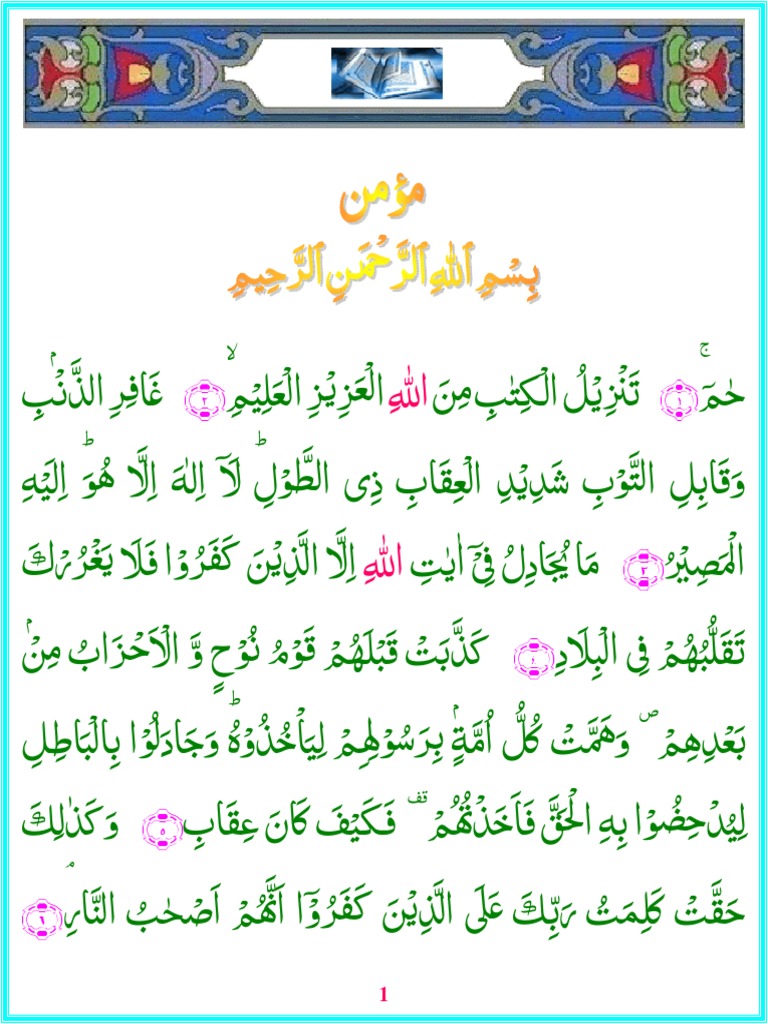 مؤمن
بِسْمِ ٱللَّهِ ٱلرَّحْمَـٰنِ ٱلرَّحِيمِ
حٰمٓ ۚ ﴿۱﴾ تَنْزِيْلُ الْكِتٰبِ مِنَ اللّٰهِ الْعَزِيْزِ الْعَلِيْمِ ۙ ﴿۲﴾ غَافِرِ الذَّنْۢبِ
وَقَابِلِ التَّوْبِ شَدِيْدِ الْعِقَابِ ذِى الطَّوْلِ ؕ لَاۤ اِلٰهَ اِلَّا هُوَ ؕ اِلَيْهِ
الْمَصِيْرُ ﴿۳﴾ مَا يُجَادِلُ فِىْۤ اٰيٰتِ اللّٰهِ اِلَّا الَّذِيْنَ كَفَرُوْا فَلَا يَغْرُرْكَ
تَقَلُّبُهُمْ فِى الْبِلَادِ ﴿۴﴾ كَذَّبَتْ قَبْلَهُمْ قَوْمُ نُوْحٍ وَّ الْاَحْزَابُ مِنْۢ
بَعْدِهِمْ ۖ وَهَمَّتْ كُلُّ اُمَّةٍۭ بِرَسُوْلِهِمْ لِيَاْخُذُوْهُ ؕ وَجَادَلُوْا بِالْبَاطِلِ
لِيُدْحِضُوْا بِهِ الْحَقَّ فَاَخَذْتُهُمْ قف فَكَيْفَ كَانَ عِقَابِ ﴿۵﴾ وَكَذٰلِكَ
حَقَّتْ كَلِمَتُ رَبِّكَ عَلَى الَّذِيْنَ كَفَرُوْۤا اَنَّهُمْ اَصْحٰبُ النَّارِ ۘ ﴿۶﴾
1